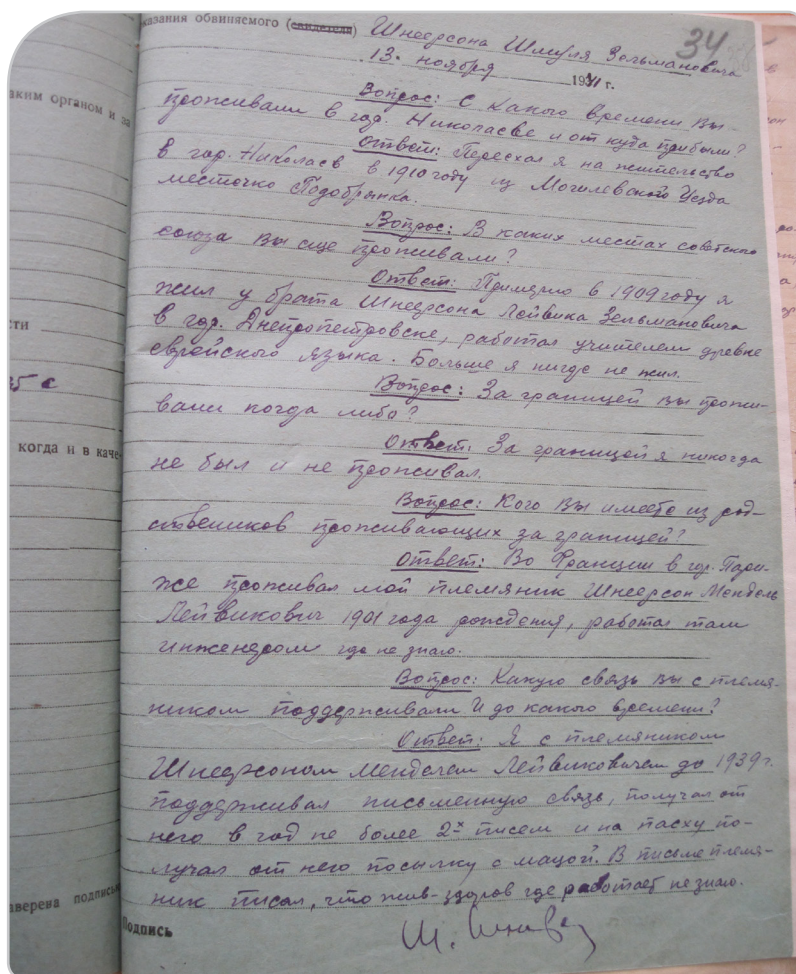 аким органом и за
сти
35 с
когда и в каче-
аверена подписью
казания обвиняемого (свидетеля) Шнеерсона Шмуля Зельмановича
34
13. ноября 1941 г.
Вопрос: С какого времени вы
проживали в гор. Николаеве и от куда прибыли?
Ответ: Переехал я на жительство
в гор. Николаев в 1910 году из Могилевского уезда
местечко Подобрянка.
Вопрос: В каких местах советского
союза вы еще проживали?
Ответ: Примерно в 1909 году я
жил у брата Шнеерсона Лейвика Зельмановича
в гор. Днепропетровске, работал учителем древне
еврейского языка. Больше я нигде не жил.
Вопрос: За границей вы прожи-
вали когда либо?
Ответ: За границей я никогда
не был и не проживал.
Вопрос: Кого вы имеете из род-
ственников проживающих за границей?
Ответ: Во Франции в гор. Пари-
же проживал мой племяник Шнеерсон Мендель
Лейвикович 1901 года рождения, работал там
инженером где не знаю.
Вопрос: Какую связь вы с племя-
ником поддерживали и до какого времени?
Ответ: Я с племяником
Шнеерсоном Менделем Лейвиковичем до 1939 г.
поддерживал письменную связь, получал от
него в год не более 2х писем и на пасху по-
лучал от него посылку с мацой. В письме племя-
ник писал, что жив-здоров где работает не знаю.
Подпись